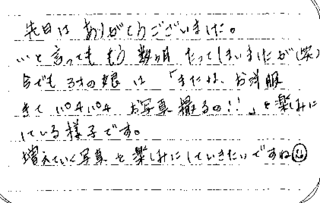 先日は ありがとうございました。
…と言っても もう 数ヶ月 たってしまいましたが(笑)
今でも 3才の娘は 「またね、お洋服
きて パチパチ お写真 撮るの!!」と楽しみに
している様子です。
増えていく写真を楽しみにしていきたいですね☺